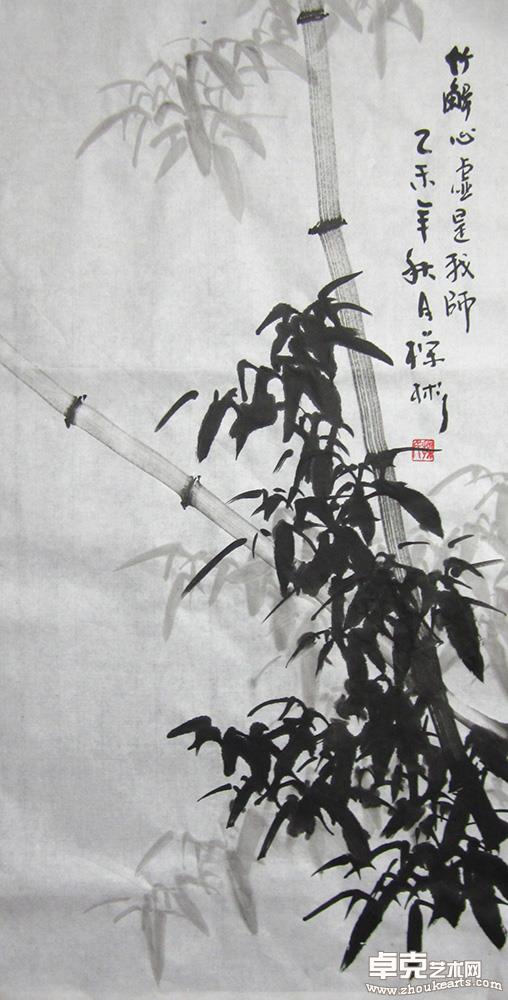 竹解心虛是我師
乙未年秋月
卓克艺术网
www.zhoukearts.com